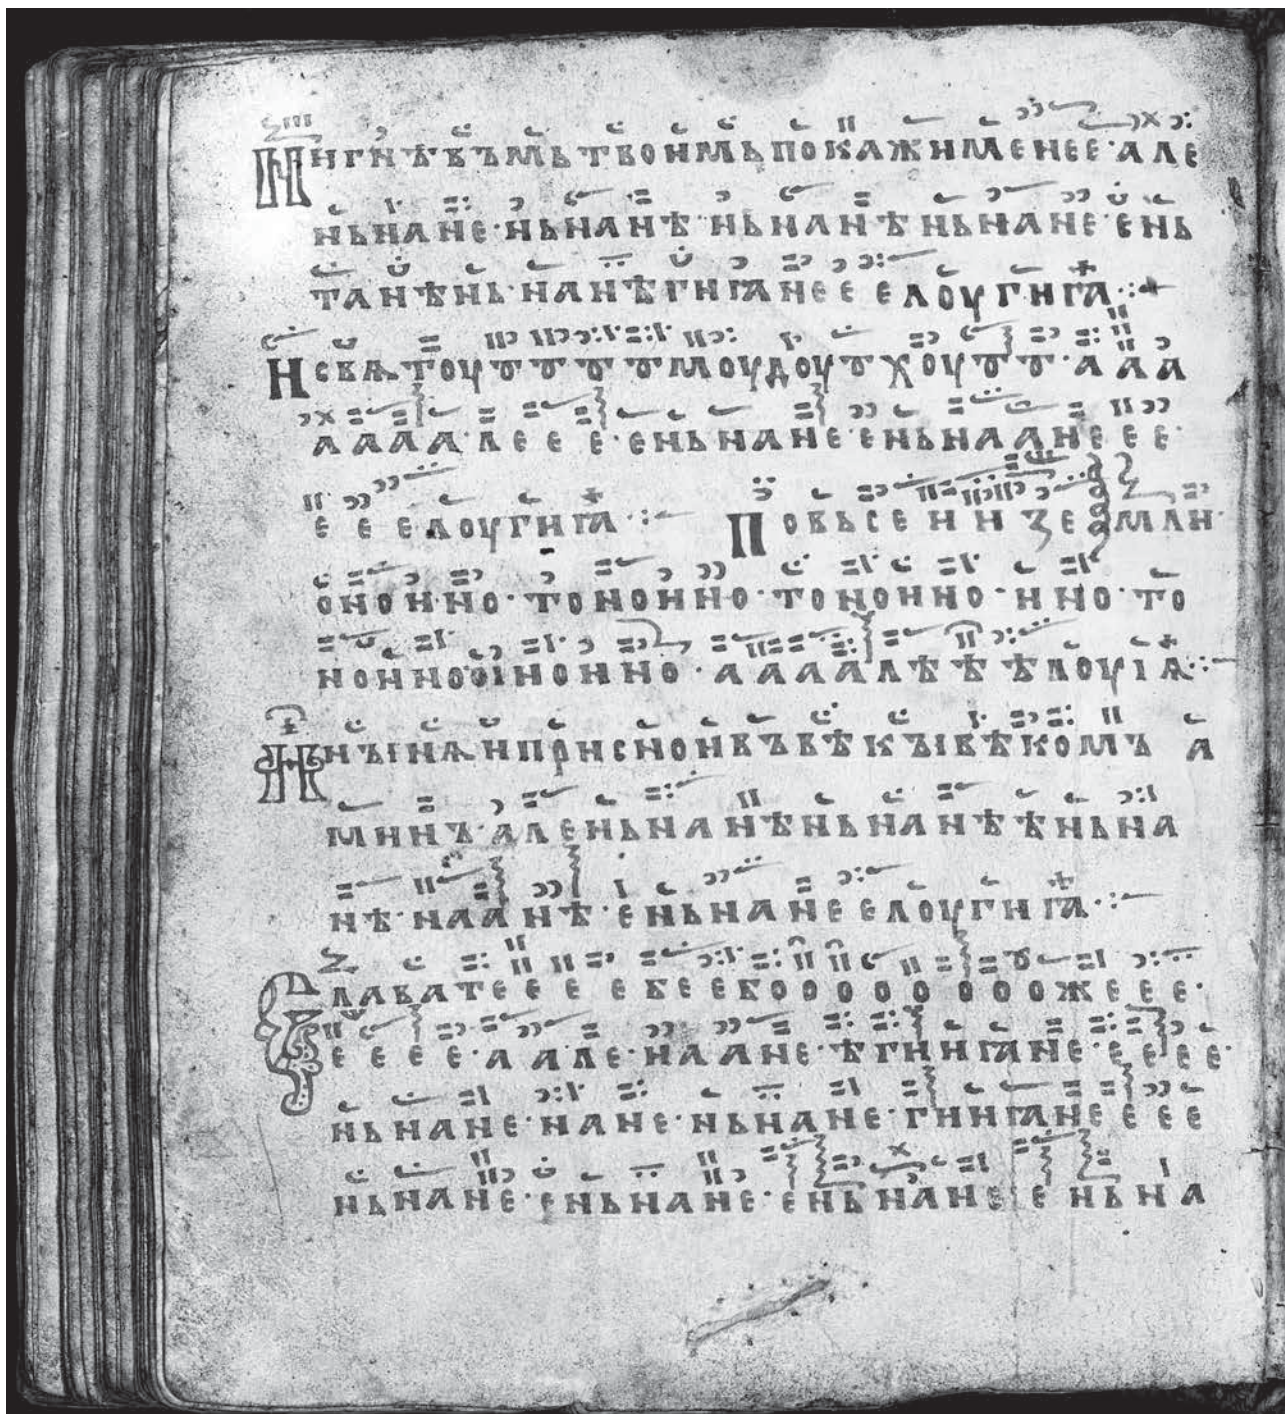 НИГНѢВЪМЬТВОИМЬПОКАЖИМЕНЕЕ·АЛЕ
НЬНАНЕ·НЬНАНѢ·НЬНАНѢНЬНАНЕ·ЕНЬ
ТАНѢНЬ·НАНѢГНГАНЕЕЕЛОУГНГА·:
НСВѦТОУꙊꙊꙊꙊМОУДОУꙊХОУꙊꙊ·ААА
АААА·ЛЕЕЕ·ЕНЬНАНЕ·ЕНЬНААНЕЕЕ·
ЕЕЕЛОУГНГА·: ПОВЬСЕННЗЕМЛН·
ОНОННО·ТОНОННО·ТОНОННО·ННО·ТО
НОННОꙨІНОННО·ААААЛѢѢѢЛОУІѦ·:
НЪІНѦНПРНСНОНВЪВѢКЪІВѢКОМЪ А
МННЪ·АЛЕНЬНАНѢНЬНАНѢѢНЬНА
НѢ·НААНѢ·ЕНЬНАНЕЕЛОУГНГА·:
СЛАВАТЕЕЕЕБЕЕБОООООООООЖЕЕЕ·
ЕЕЕЕ·ААЛЕ·НААНЕ·ѢГННГАНЕ·ЕЕЕЕ·
НЬНАНЕ·НАНЕ·НЬНАНЕ·ГННГАНЕЕЕЕ
НЬНАНЕ·ЕНЬНАНЕ·ЕНЬНАНЕЕНЬНА